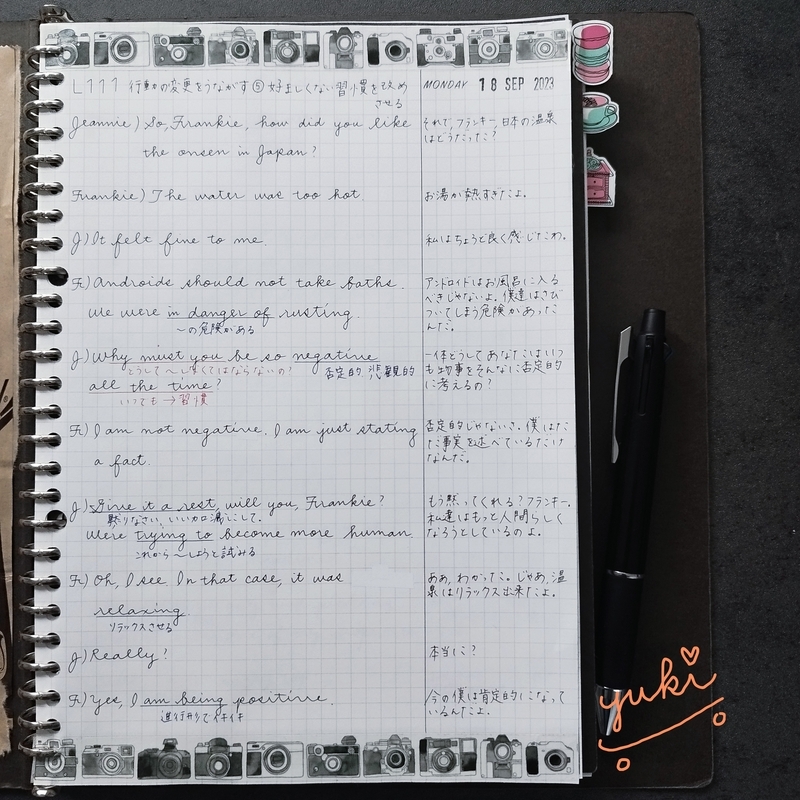 L111 行動の変更をうながす⑤ 好ましくない習慣を改め
させる
MONDAY 18 SEP 2023
Jeannie) So, Frankie, how did you like
the onsen in Japan?
それで、フランキー、日本の温泉
はどうだった?
Frankie) The water was too hot.
お湯が熱すぎたよ。
J) It felt fine to me.
私はちょうど良く感じたわ。
F) Androids should not take baths.
We were in danger of rusting.
〜の危険がある
アンドロイドはお風呂に入る
べきじゃないよ。僕達はさび
ついてしまう危険があった
んだ。
J) Why must you be so negative
どうして〜しなくてはならないの? 否定的 悲観的
all the time?
いつても → 習慣
一体どうしてあなたはいつ
も物事をそんなに否定的
に考えるの?
F) I am not negative. I am just stating
a fact.
否定的じゃないさ。僕はた
だ事実を述べているだけ
なんだ。
J) Give it a rest, will you, Frankie?
黙りなさい、いいカロ減にして。
We're trying to become more human.
これから〜しようと試みる
もう黙ってくれる?フランキー。
私達はもっと人間らしく
なろうとしているのよ。
F) Oh, I see. In that case, it was
relaxing
リラックスさせる
ああ、わかった。じゃあ、温
泉はリラックス出来たよ。
J) Really?
本当に?
F) Yes, I am being positive.
進行形でイキイキ
今の僕は肯定的になって
いるんだよ。
yuki